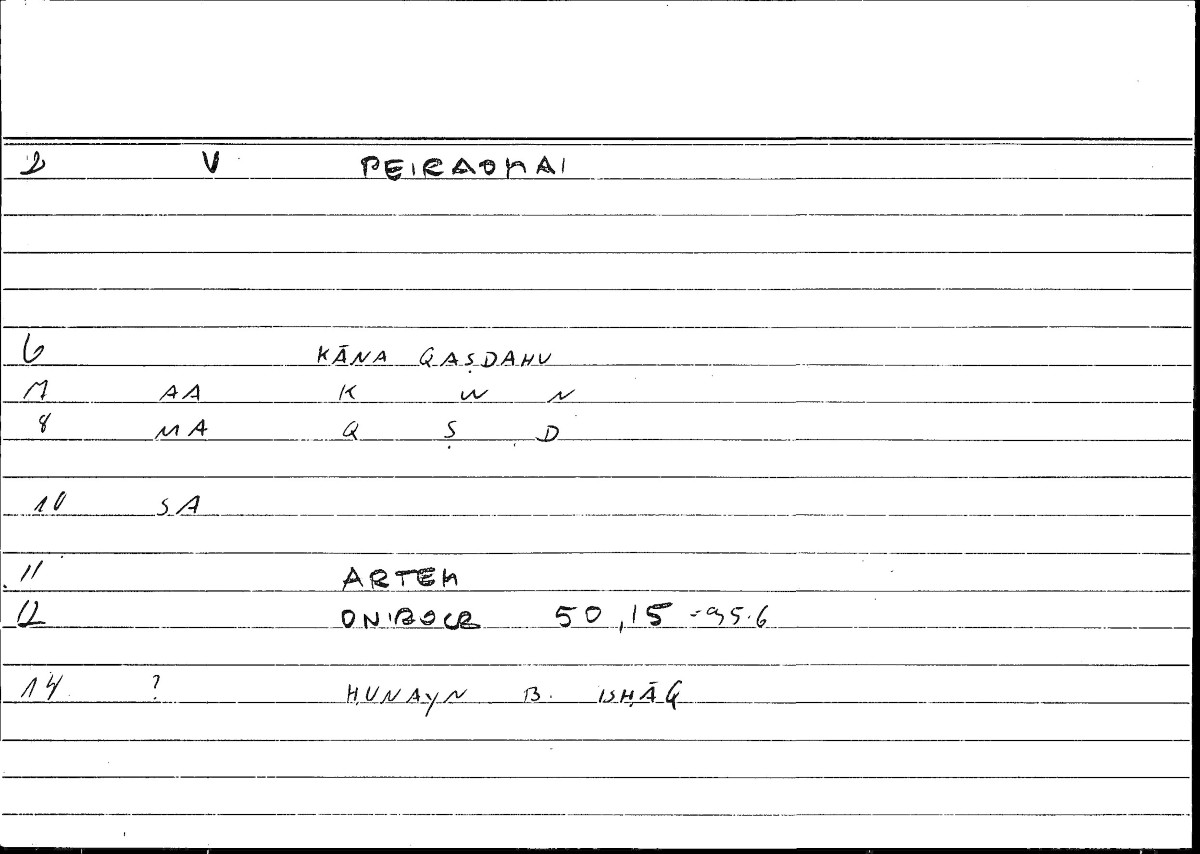 2 V PEIRAOMAI
6 KĀNA QAṢDAHU
7 AA K W N
8 MA Q Ṣ D
10 SA
11 ARTEM
12 ONIROCR 50,15 = 95.6
14 ? ḤUNAYN B. ISḤĀQ